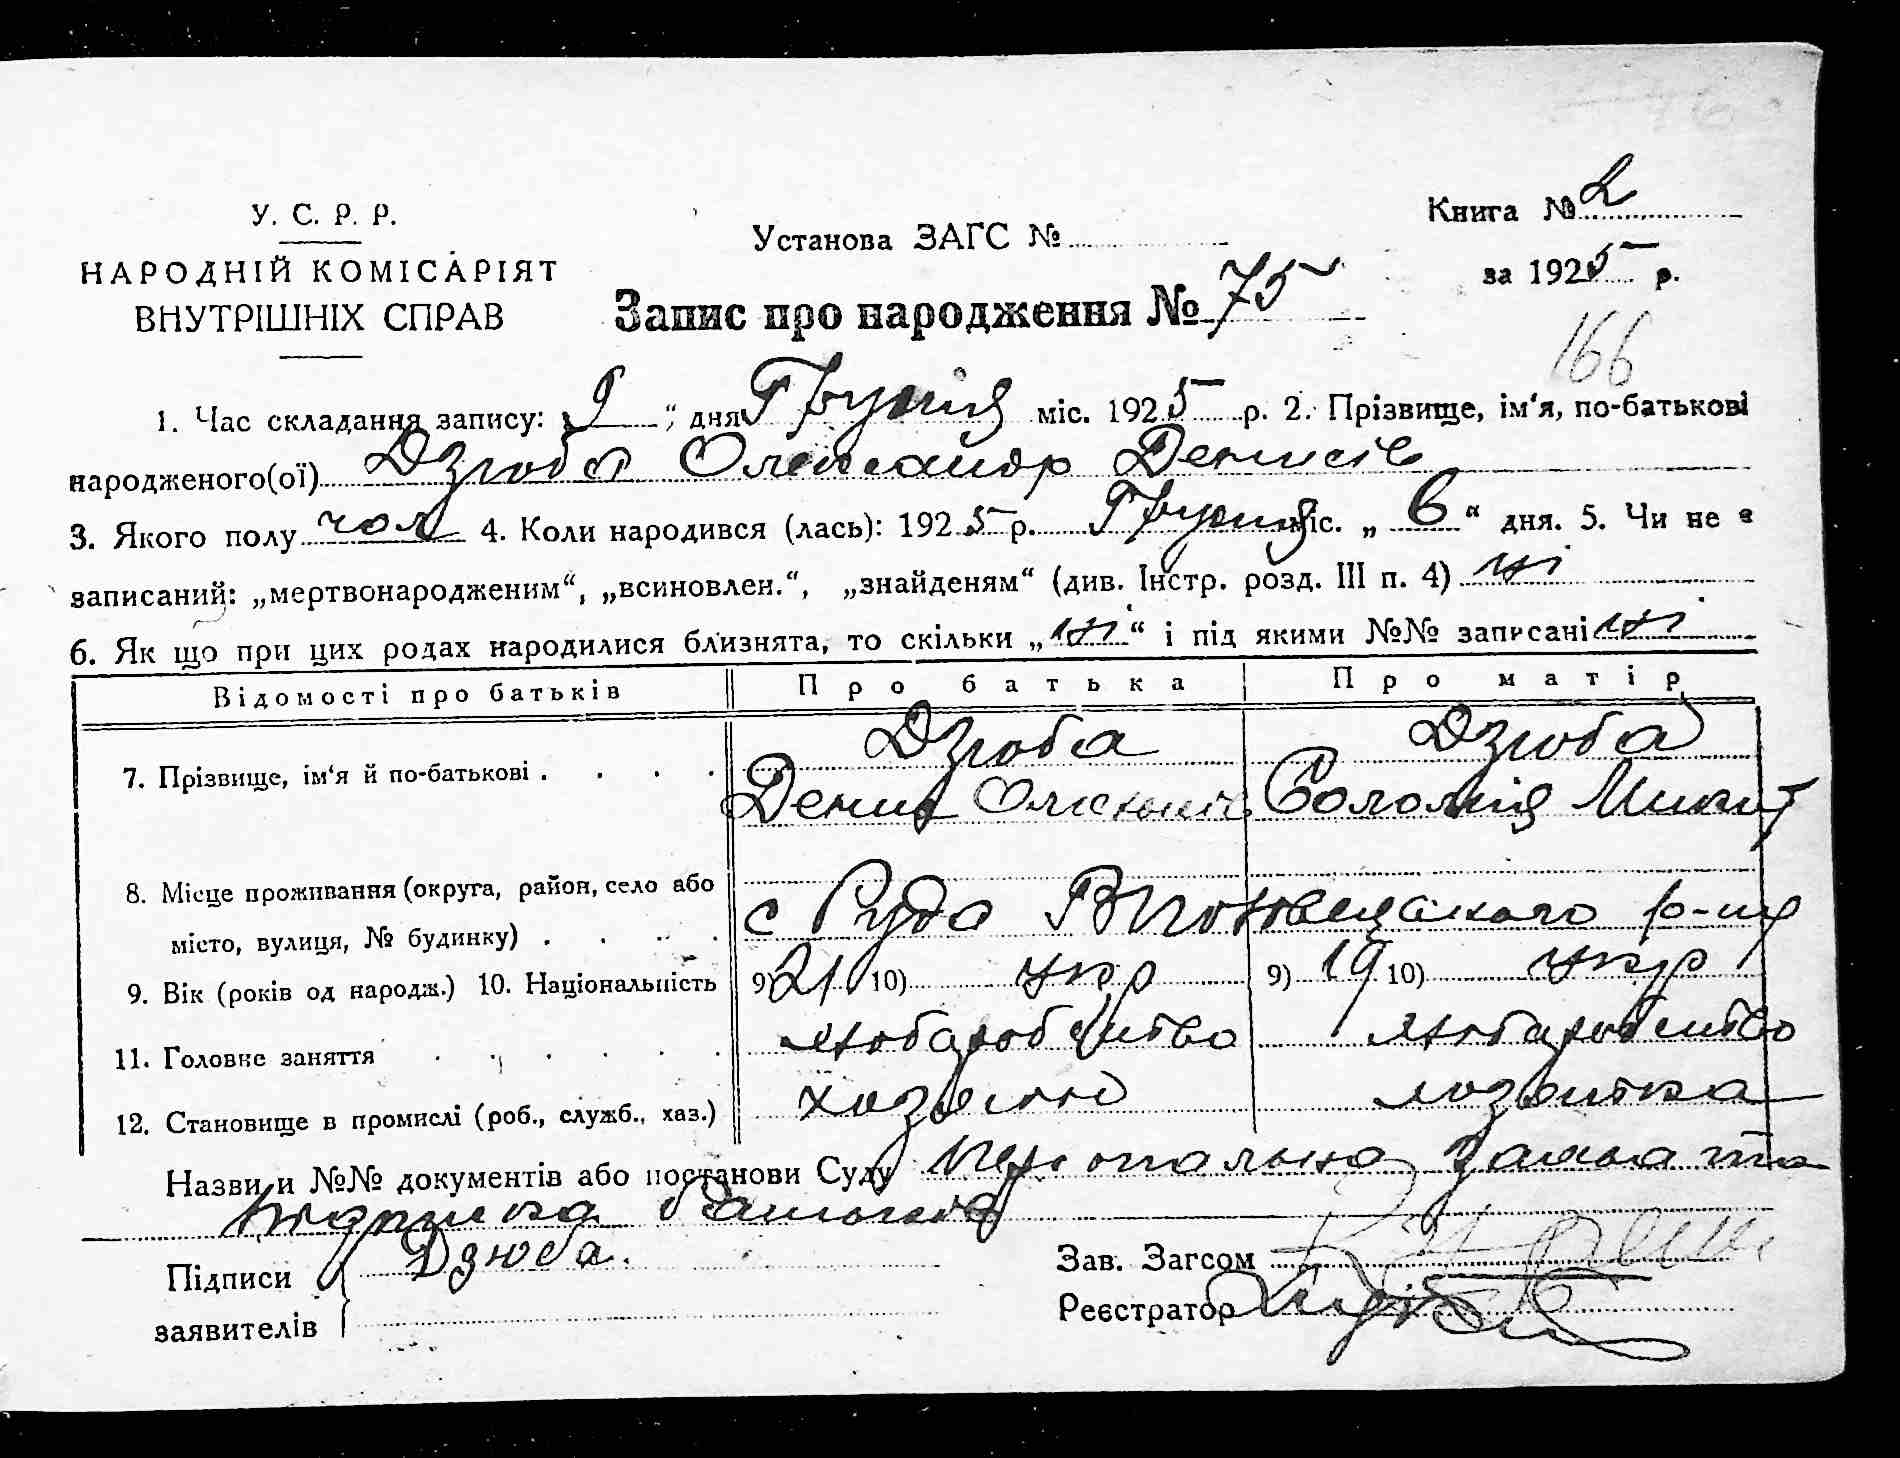 У. С. Р. Р.
НАРОДНІЙ КОМІСАРІЯТ
ВНУТРІШНІХ СПРАВ
Установа ЗАГС №
Книга № 2
за 1925 р.
Запис про народження № 75
166
1. Час складання запису: „9“ дня Грудня міс. 1925 р. 2. Прізвище, ім‘я, по-батькові
народженого(ої) Дзюба Олександр Денисів
3. Якого полу чол 4. Коли народився (лась): 1925 р. Грудня міс. „6“ дня. 5. Чи не є
записаний: „мертвонародженим“, „всиновлен.“, „знайденям“ (див. Інстр. розд. III п. 4) ні
6. Як що при цих родах народилися близнята, то скільки „ні“ і під якими №№ записані ні
Відомості про батьків Про батька Про матір
7. Прізвище, ім‘я й по-батькові . . . . Дзюба Дзюба
Денис Соломія Микит
8. Місце проживання (округа, район, село або
місто, вулиця, № будинку) . . . . с Руда р-ну
9. Вік (років од народж.) 10. Національність 9) 21 10) укр 9) 19 10) укр
11. Головне заняття . . . . . . хліборобство хліборобство
12. Становище в промислі (роб., служб., хаз.) хозяїн хозяйка
Назви и №№ документів або постанови Суду персональна заява та
підписка батьків
Підписи Дзюба.
заявителів
Зав. Загсом
Реєстратор